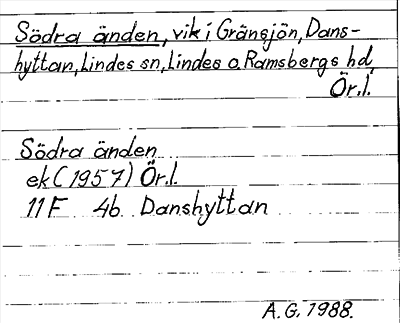 Södra änden, vik i Gränsjön, Dans-
hyttan, Lindes sn, Lindes o. Ramsbergs hd,
Ör.l.
Södra änden
ek (1957) Ör.l.
11 F 4b Danshyttan
A.G. 1988.